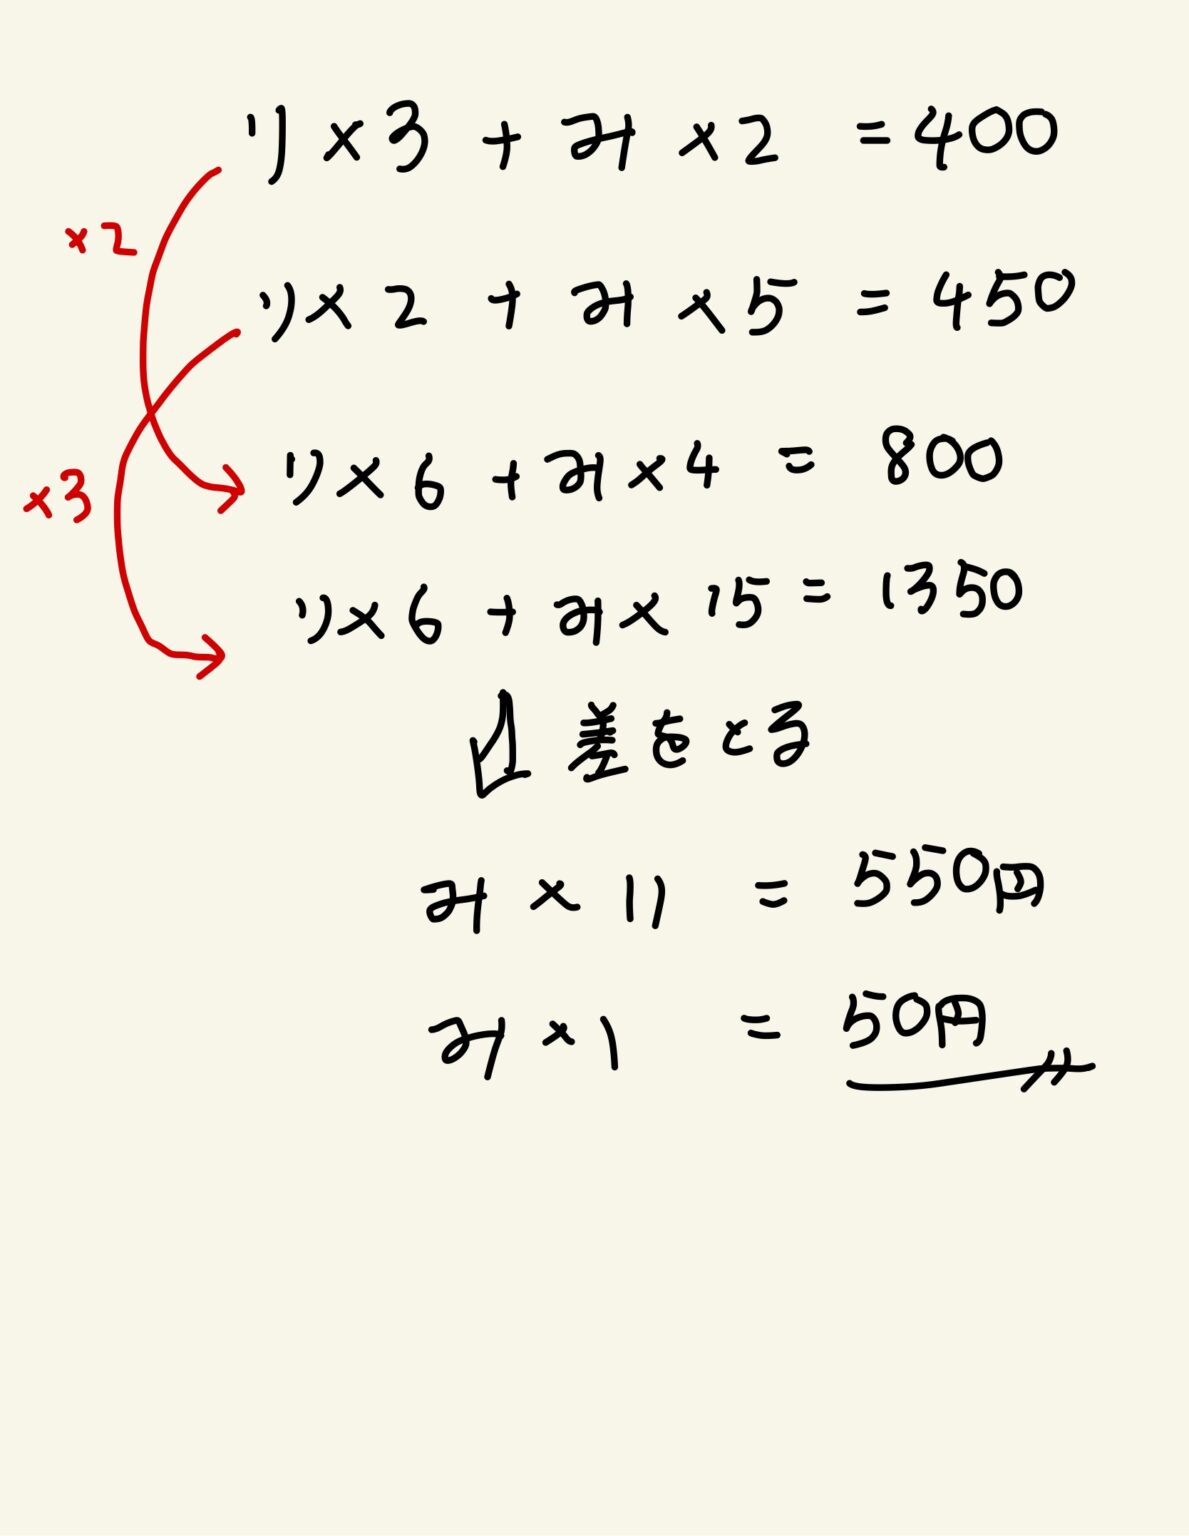 り×3 + み×2 = 400
×2
り×2 + み×5 = 450
り×6 + み×4 = 800
×3
り×6 + み×15 = 1350
差をとる
み×11 = 550円
み×1 = 50円